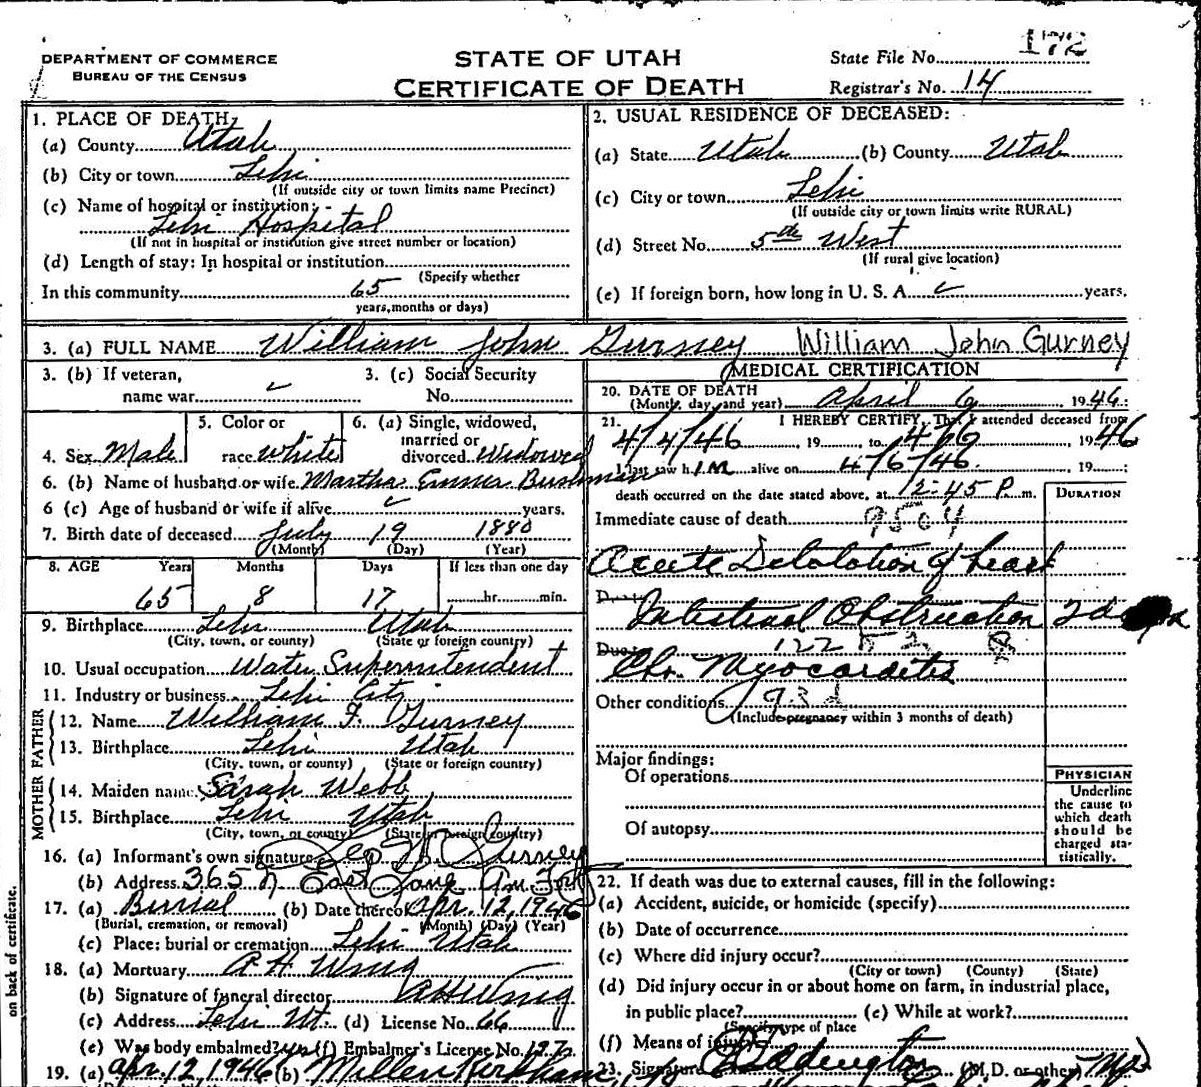 DEPARTMENT OF COMMERCE
BUREAU OF THE CENSUS
STATE OF UTAH
CERTIFICATE OF DEATH
State File No. 172
Registrar's No. 14
1. PLACE OF DEATH
(a) County Utah
(b) City or town Lehi
(If outside city or town limits name Precinct)
(c) Name of hospital or institution:
Lehi Hospital
(If not in hospital or institution give street number or location)
(d) Length of stay: In hospital or institution
(Specify whether
In this community 65
years, months or days)
2. USUAL RESIDENCE OF DECEASED:
(a) State Utah (b) County Utah
(c) City or town Lehi
(If outside city or town limits write RURAL)
(d) Street No. 5th West
(If rural give location)
(e) If foreign born, how long in U. S. A. years.
3. (a) FULL NAME William John Gurney William John Gurney
3. (b) If veteran, name war
3. (c) Social Security No.
4. Sex Male
5. Color or race White
6. (a) Single, widowed, married or divorced Widowed
6. (b) Name of husband or wife Martha Bushman
6 (c) Age of husband or wife if alive years.
7. Birth date of deceased July 19 1880
(Month) (Day) (Year)
8. AGE Years Months Days If less than one day
65 8 17 hr. min.
9. Birthplace Lehi Utah
(City, town, or county) (State or foreign country)
10. Usual occupation Water Superintendent
11. Industry or business Lehi City
FATHER
12. Name William F. Gurney
13. Birthplace Lehi Utah
(City, town, or county) (State or foreign country)
MOTHER
14. Maiden name Sarah Webb
15. Birthplace Lehi Utah
(City, town, or county) (State or foreign country)
16. (a) Informant's own signature Gurney
(b) Address 365 N East Am. Fork
17. (a) Burial (b) Date thereof Apr. 12, 1946
(Burial, cremation, or removal) (Month) (Day) (Year)
(c) Place: burial or cremation Lehi Utah
18. (a) Mortuary A H Wing
(b) Signature of funeral director A H Wing
(c) Address Lehi Ut. (d) License No. 66
(e) Was body embalmed? yes (f) Embalmer's License No. 197
19. (a) Apr. 12 1946 (b)
on back of certificate.
MEDICAL CERTIFICATION
20. DATE OF DEATH
(Month, day, and year) April 6 1946
21. I HEREBY CERTIFY, That I attended deceased from
4/4/46, 19 to 4/6 1946
I last saw h im alive on 4/6/46, 19 ;
death occurred on the date stated above, at 12:45 P. m.
DURATION
Immediate cause of death
Acute Dilatation of heart
Due to
Intestinal Obstruction
Due to
Chr. Myocarditis
Other conditions 93d
(Include pregnancy within 3 months of death)
Major findings:
Of operations
Of autopsy
PHYSICIAN
Underline
the cause to
which death
should be
charged sta-
tistically.
22. If death was due to external causes, fill in the following:
(a) Accident, suicide, or homicide (specify)
(b) Date of occurrence
(c) Where did injury occur?
(City or town) (County) (State)
(d) Did injury occur in or about home on farm, in industrial place,
in public place? (e) While at work?
(Specify type of place
(f) Means of injury
23. Signature Eddington (M.D. or other) MD